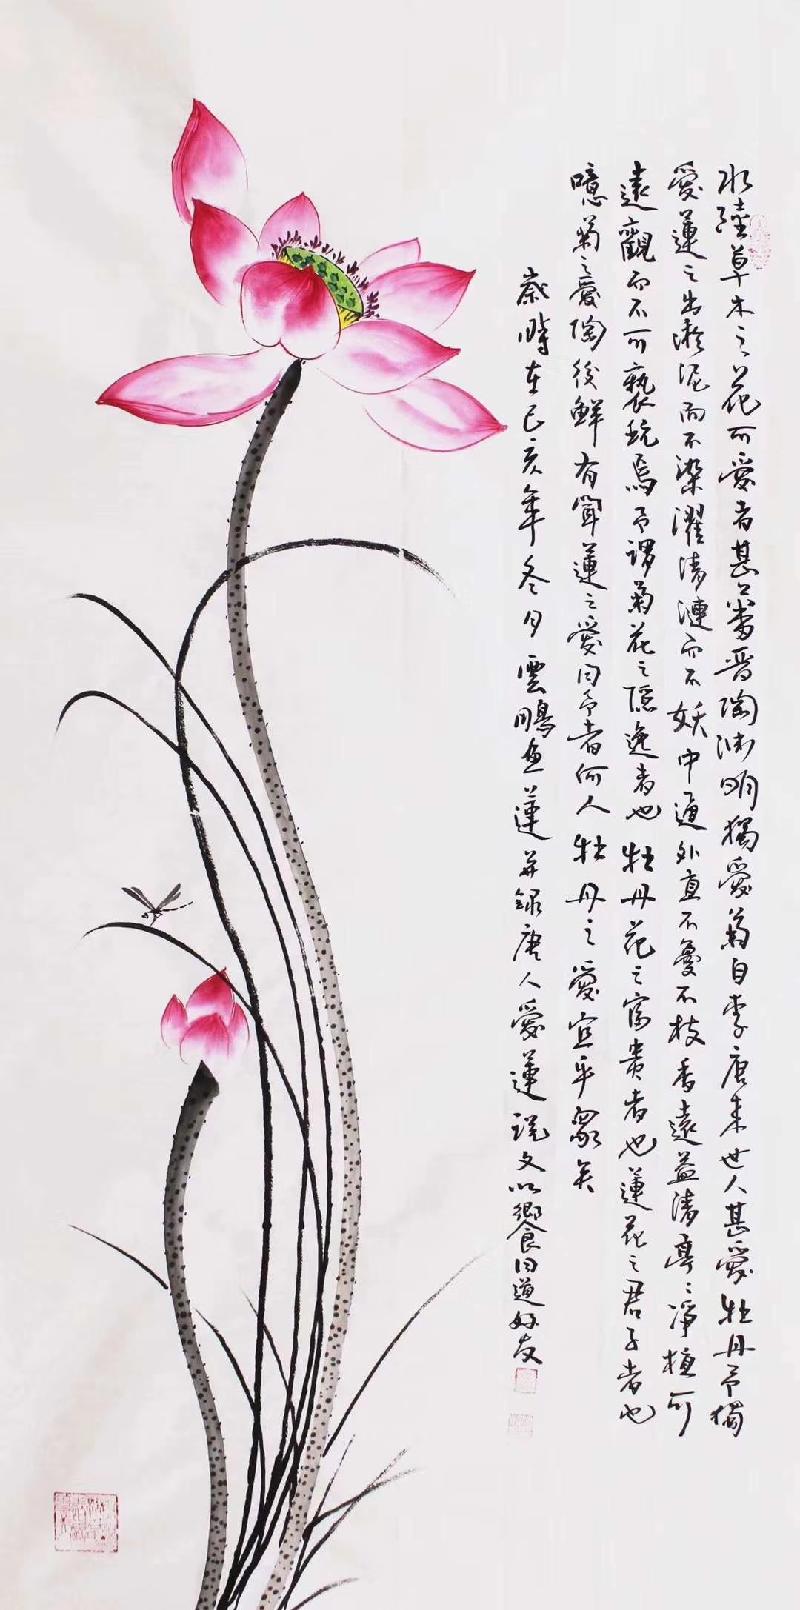 水陸草木之花可愛者甚蕃晋陶渊明獨愛菊自李唐来世人甚愛牡丹予獨
愛蓮之出淤泥而不染濯清漣而不妖中通外直不蔓不枝香遠益清亭々净植可
遠觀而不可褻玩焉予謂菊花之隐逸者也牡丹花之富贵者也蓮花之君子者也
噫菊之愛陶後鮮有闻蓮之愛同予者何人牡丹之愛宜乎眾矣
歲時在己亥年冬月雲鵬画蓮并録唐人愛蓮说文以饗同道好友